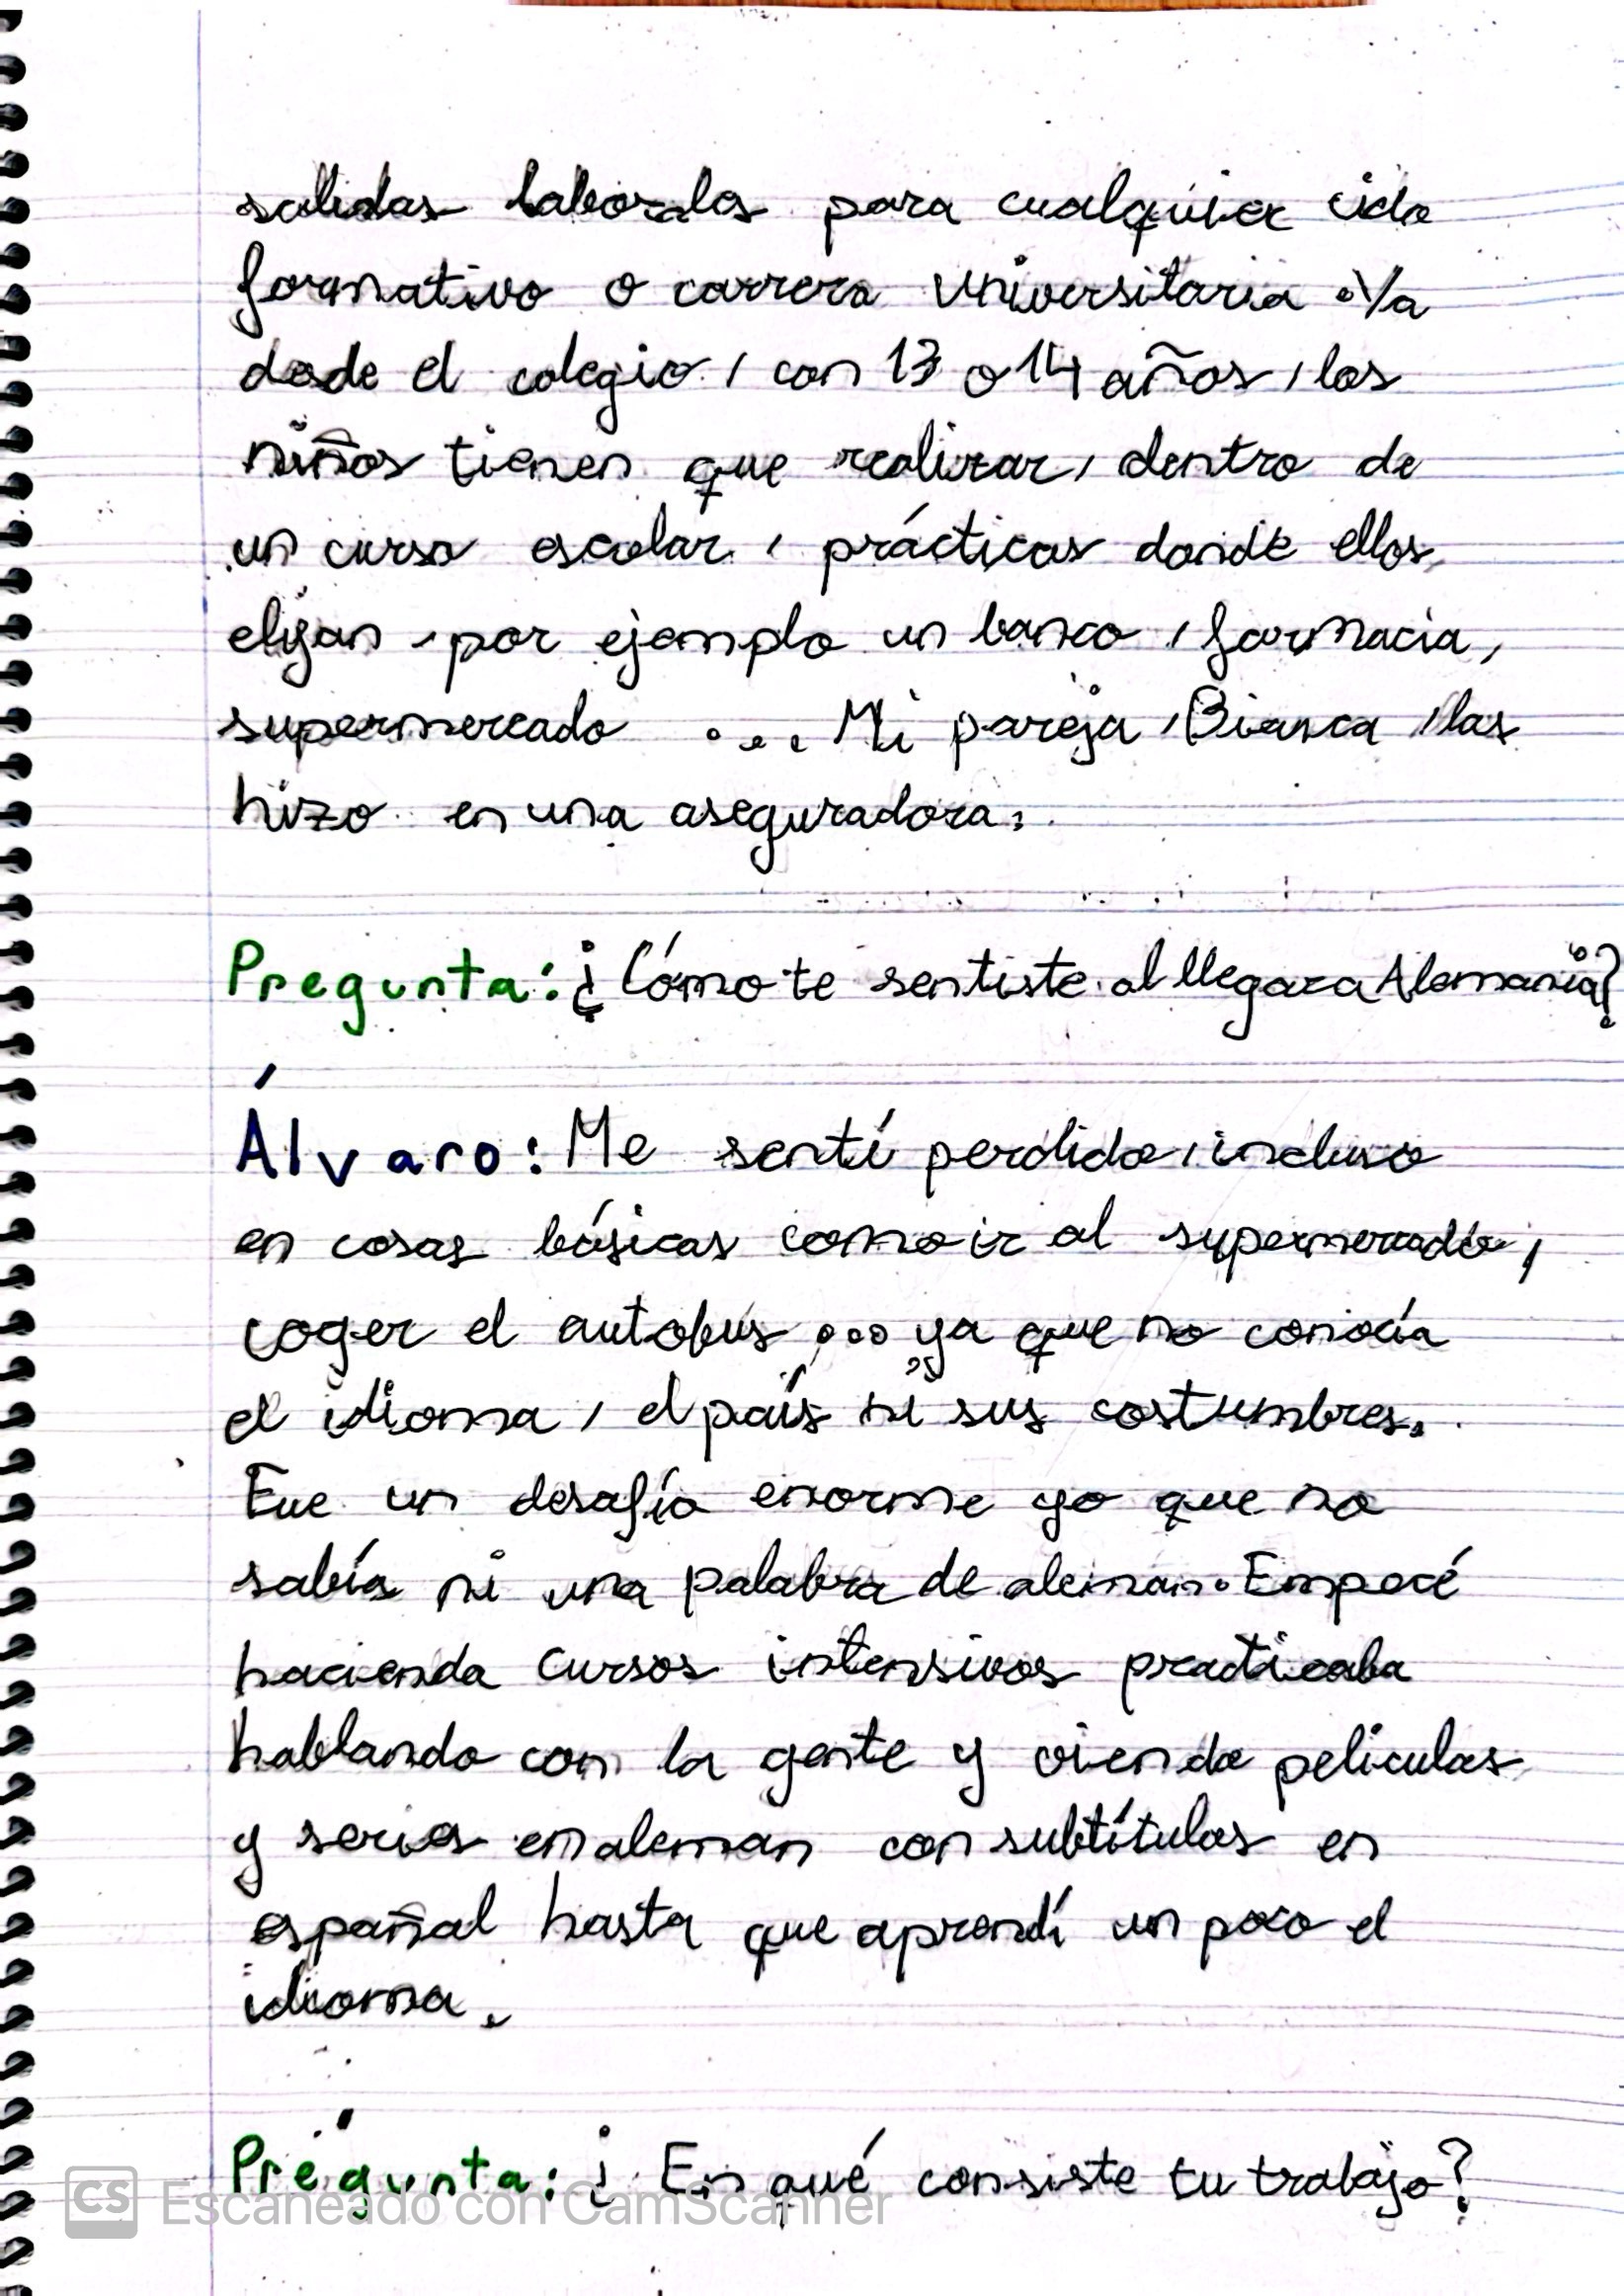 salidas laborales para cualquier ciclo
formativo o carrera universitaria. Ya
desde el colegio, con 13 o 14 años, los
niños tienen que realizar, dentro de
un curso escolar, prácticas donde ellos
elijan, por ejemplo un banco, farmacia,
supermercado ... Mi pareja, Bianca, las
hizo en una aseguradora.
Pregunta: ¿Cómo te sentiste al llegar a Alemania?
Álvaro: Me sentí perdido, incluso
en cosas básicas como ir al supermercado,
coger el autobús ... ya que no conocía
el idioma, el país ni sus costumbres.
Fue un desafío enorme ya que no
sabía ni una palabra de aleman. Empecé
haciendo cursos intensivos practicaba
hablando con la gente y viendo peliculas
y series en aleman con subtítulos en
español hasta que aprendí un poco el
idioma.
Pregunta: ¿En qué consiste tu trabajo?
CS Escaneado con CamScanner